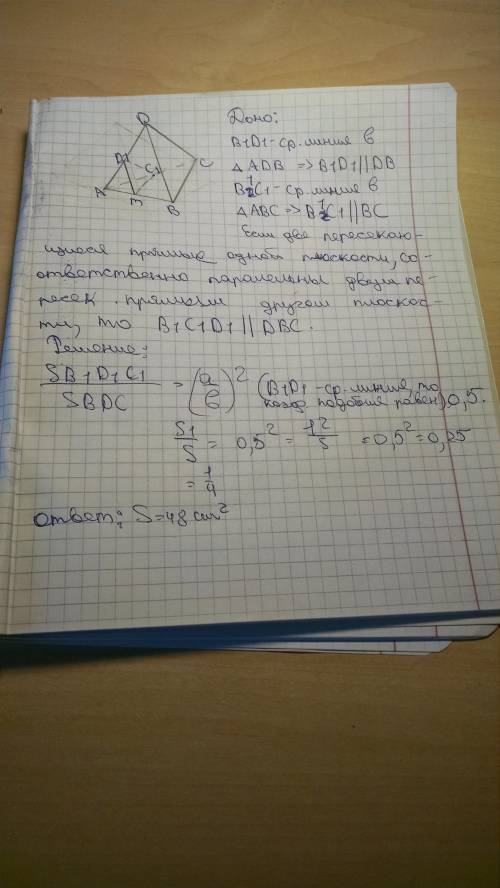 D
D1
C1
C
A
m
B
Дано:
B1D1-ср. линия в
△ADB => B1D1||DB
B1C1-ср. линия в
△ABC => B1C1||BC
Если две пересекаю-
щиеся прямые одной плоскости, со-
ответственно паралельны двум пе-
ресек. прямым другой плоскос-
ти, то B1C1D1 || DBC.
Решение:
SB1D1C1 / SBDC = (a/b)² (B1D1-ср. линия, то
коэф. подобия равен) 0,5.
S1/S = 0,5² = 12/S = 0,5² = 0,25
= 1/4
ответ: S=48 см²